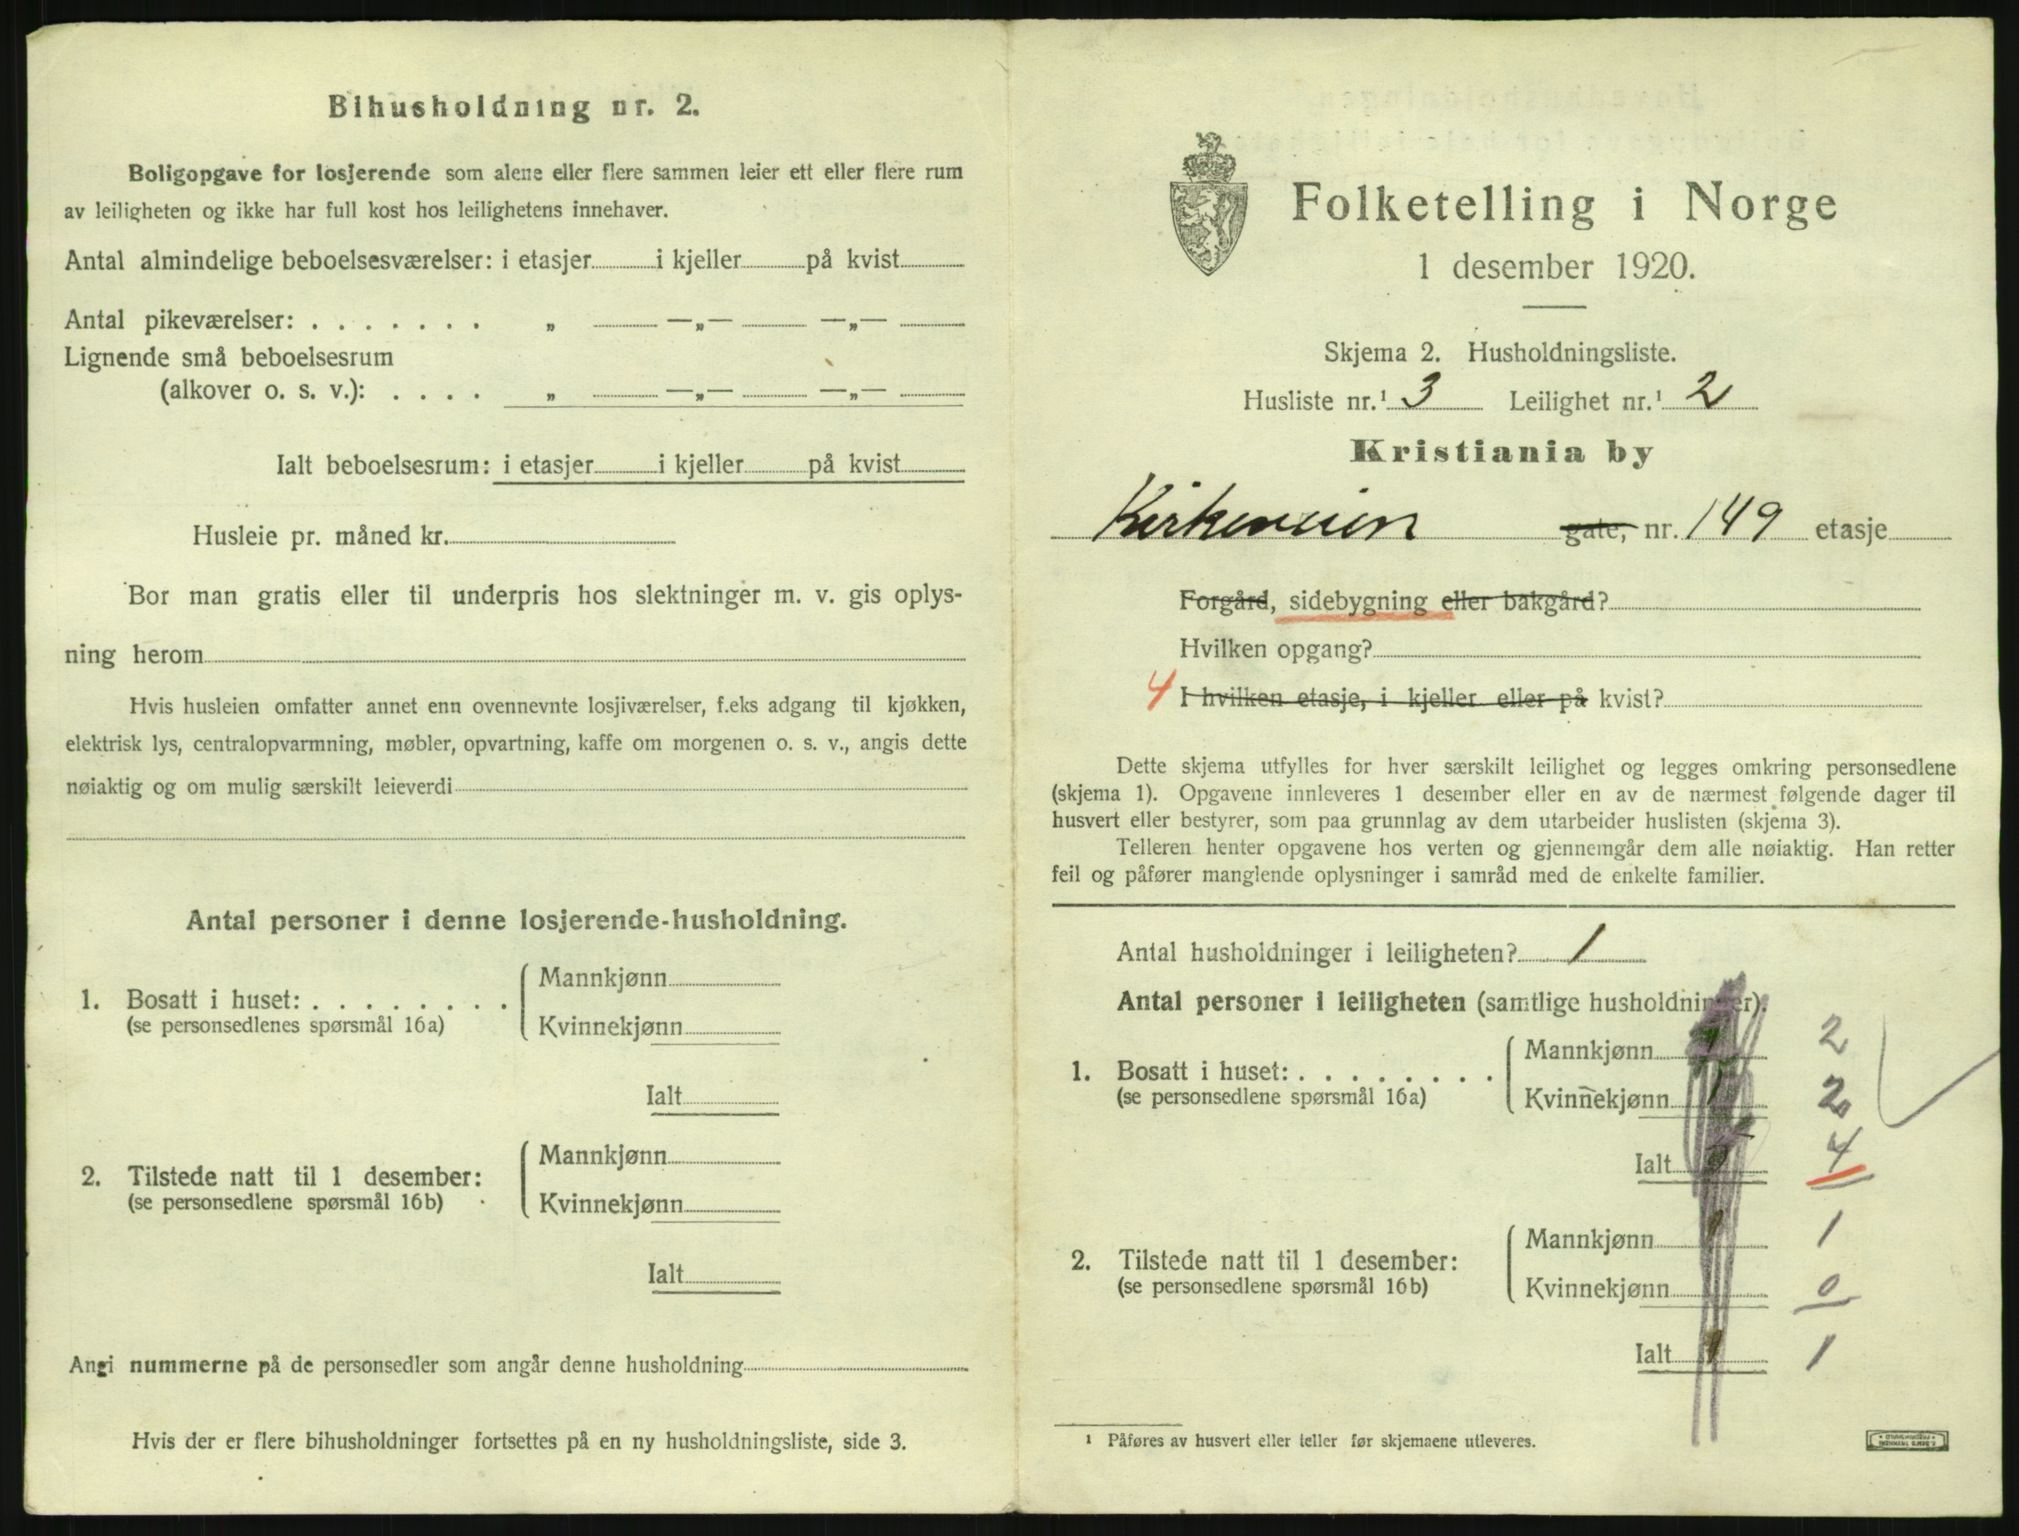 Bihusholdning nr. 2.
Boligopgave for losjerende som alene eller flere sammen leier ett eller flere rum
av leiligheten og ikke har full kost hos leilighetens innehaver.
Antal almindelige beboelsesværelser: i etasjer i kjeller på kvist
Antal pikeværelser: . . . . . . . „ —„— —„—
Lignende små beboelsesrum
(alkover o. s. v.): . . . . „ —„— —„—
Ialt beboelsesrum: i etasjer i kjeller på kvist
Husleie pr. måned kr.
Bor man gratis eller til underpris hos slektninger m. v. gis oplys-
ning herom
Hvis husleien omfatter annet enn ovennevnte losjiværelser, f.eks adgang til kjøkken,
elektrisk lys, centralopvarmning, møbler, opvartning, kaffe om morgenen o. s. v., angis dette
nøiaktig og om mulig særskilt leieverdi
Antal personer i denne losjerende-husholdning.
Mannkjønn
1. Bosatt i huset: . . . . . . . .
(se personsedlenes spørsmål 16a)
Kvinnekjønn
Ialt
Mannkjønn
2. Tilstede natt til 1 desember:
(se personsedlene spørsmål 16b)
Kvinnekjønn
Ialt
Angi nummerne på de personsedler som angår denne husholdning
Hvis der er flere bihusholdninger fortsettes på en ny husholdningsliste, side 3.
Folketelling i Norge
1 desember 1920.
Skjema 2. Husholdningsliste.
Husliste nr.¹ 3 Leilighet nr.¹ 2
Kristiania by
Kirkeveien gate, nr. 149 etasje
Forgård, sidebygning eller bakgård?
Hvilken opgang?
4 I hvilken etasje, i kjeller eller på kvist?
Dette skjema utfylles for hver særskilt leilighet og legges omkring personsedlene
(skjema 1). Opgavene innleveres 1 desember eller en av de nærmest følgende dager til
husvert eller bestyrer, som paa grunnlag av dem utarbeider huslisten (skjema 3).
Telleren henter opgavene hos verten og gjennemgår dem alle nøiaktig. Han retter
feil og påfører manglende oplysninger i samråd med de enkelte familier.
Antal husholdninger i leiligheten? 1
Antal personer i leiligheten (samtlige husholdninger).
Mannkjønn 2
1. Bosatt i huset: . . . . . . . .
(se personsedlene spørsmål 16a)
Kvinnekjønn 2
Ialt 4
Mannkjønn 1
2. Tilstede natt til 1 desember:
(se personsedlene spørsmål 16b)
Kvinnekjønn 0
Ialt 1
¹ Påføres av husvert eller teller før skjemaene utleveres.